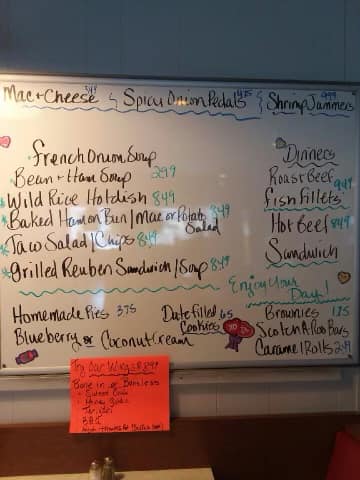 Mac + Cheese & Spicy Onion Pedals & Shrimp Jammers
French Onion Soup
Bean + Ham Soup 2.99
Wild Rice Hotdish 8.49
Baked Ham on Bun / Mac or Potato Salad 8.49
Taco Salad / Chips 8.49
Grilled Reuben Sandwich / Soup 8.49
Dinners
Roast Beef
Fish Fillets 9.49
Hot Beef 8.49
Sandwich
Enjoy Your Day!
Homemade Pies 3.75
Blueberry or Coconut Cream
Date filled Cookies .65
Brownies 1.25
Scotch A Roo Bars
Caramel Rolls
Try Our Wings 8.49
Bone in or Boneless
Sweet Chili
BBQ